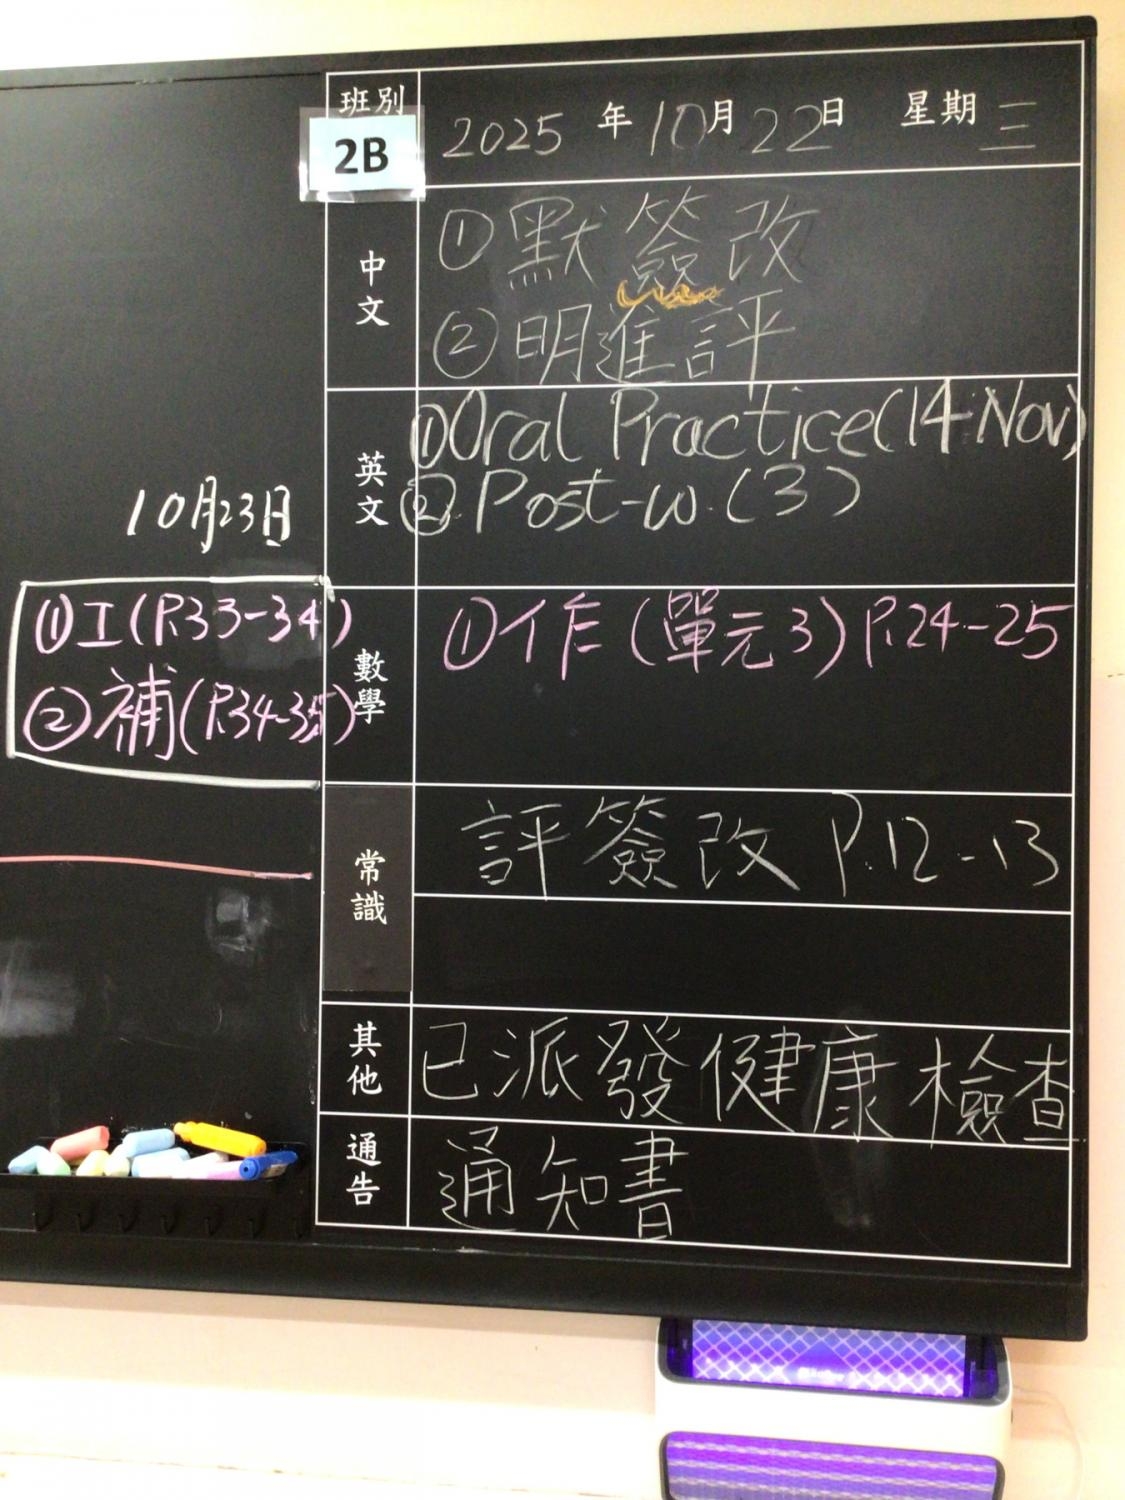 班別
2B
2025年10月22日 星期三
中文
①默簽改
②明進評
英文
①Oral Practice(14 Nov)
②Post-w.(3)
10月23日
①工(P.33-34)
②補(P.34-35)
數學
①作(單元3)P.24-25
常識
評簽改 P.12-13
其他
已派發健康檢查
通告
通知書